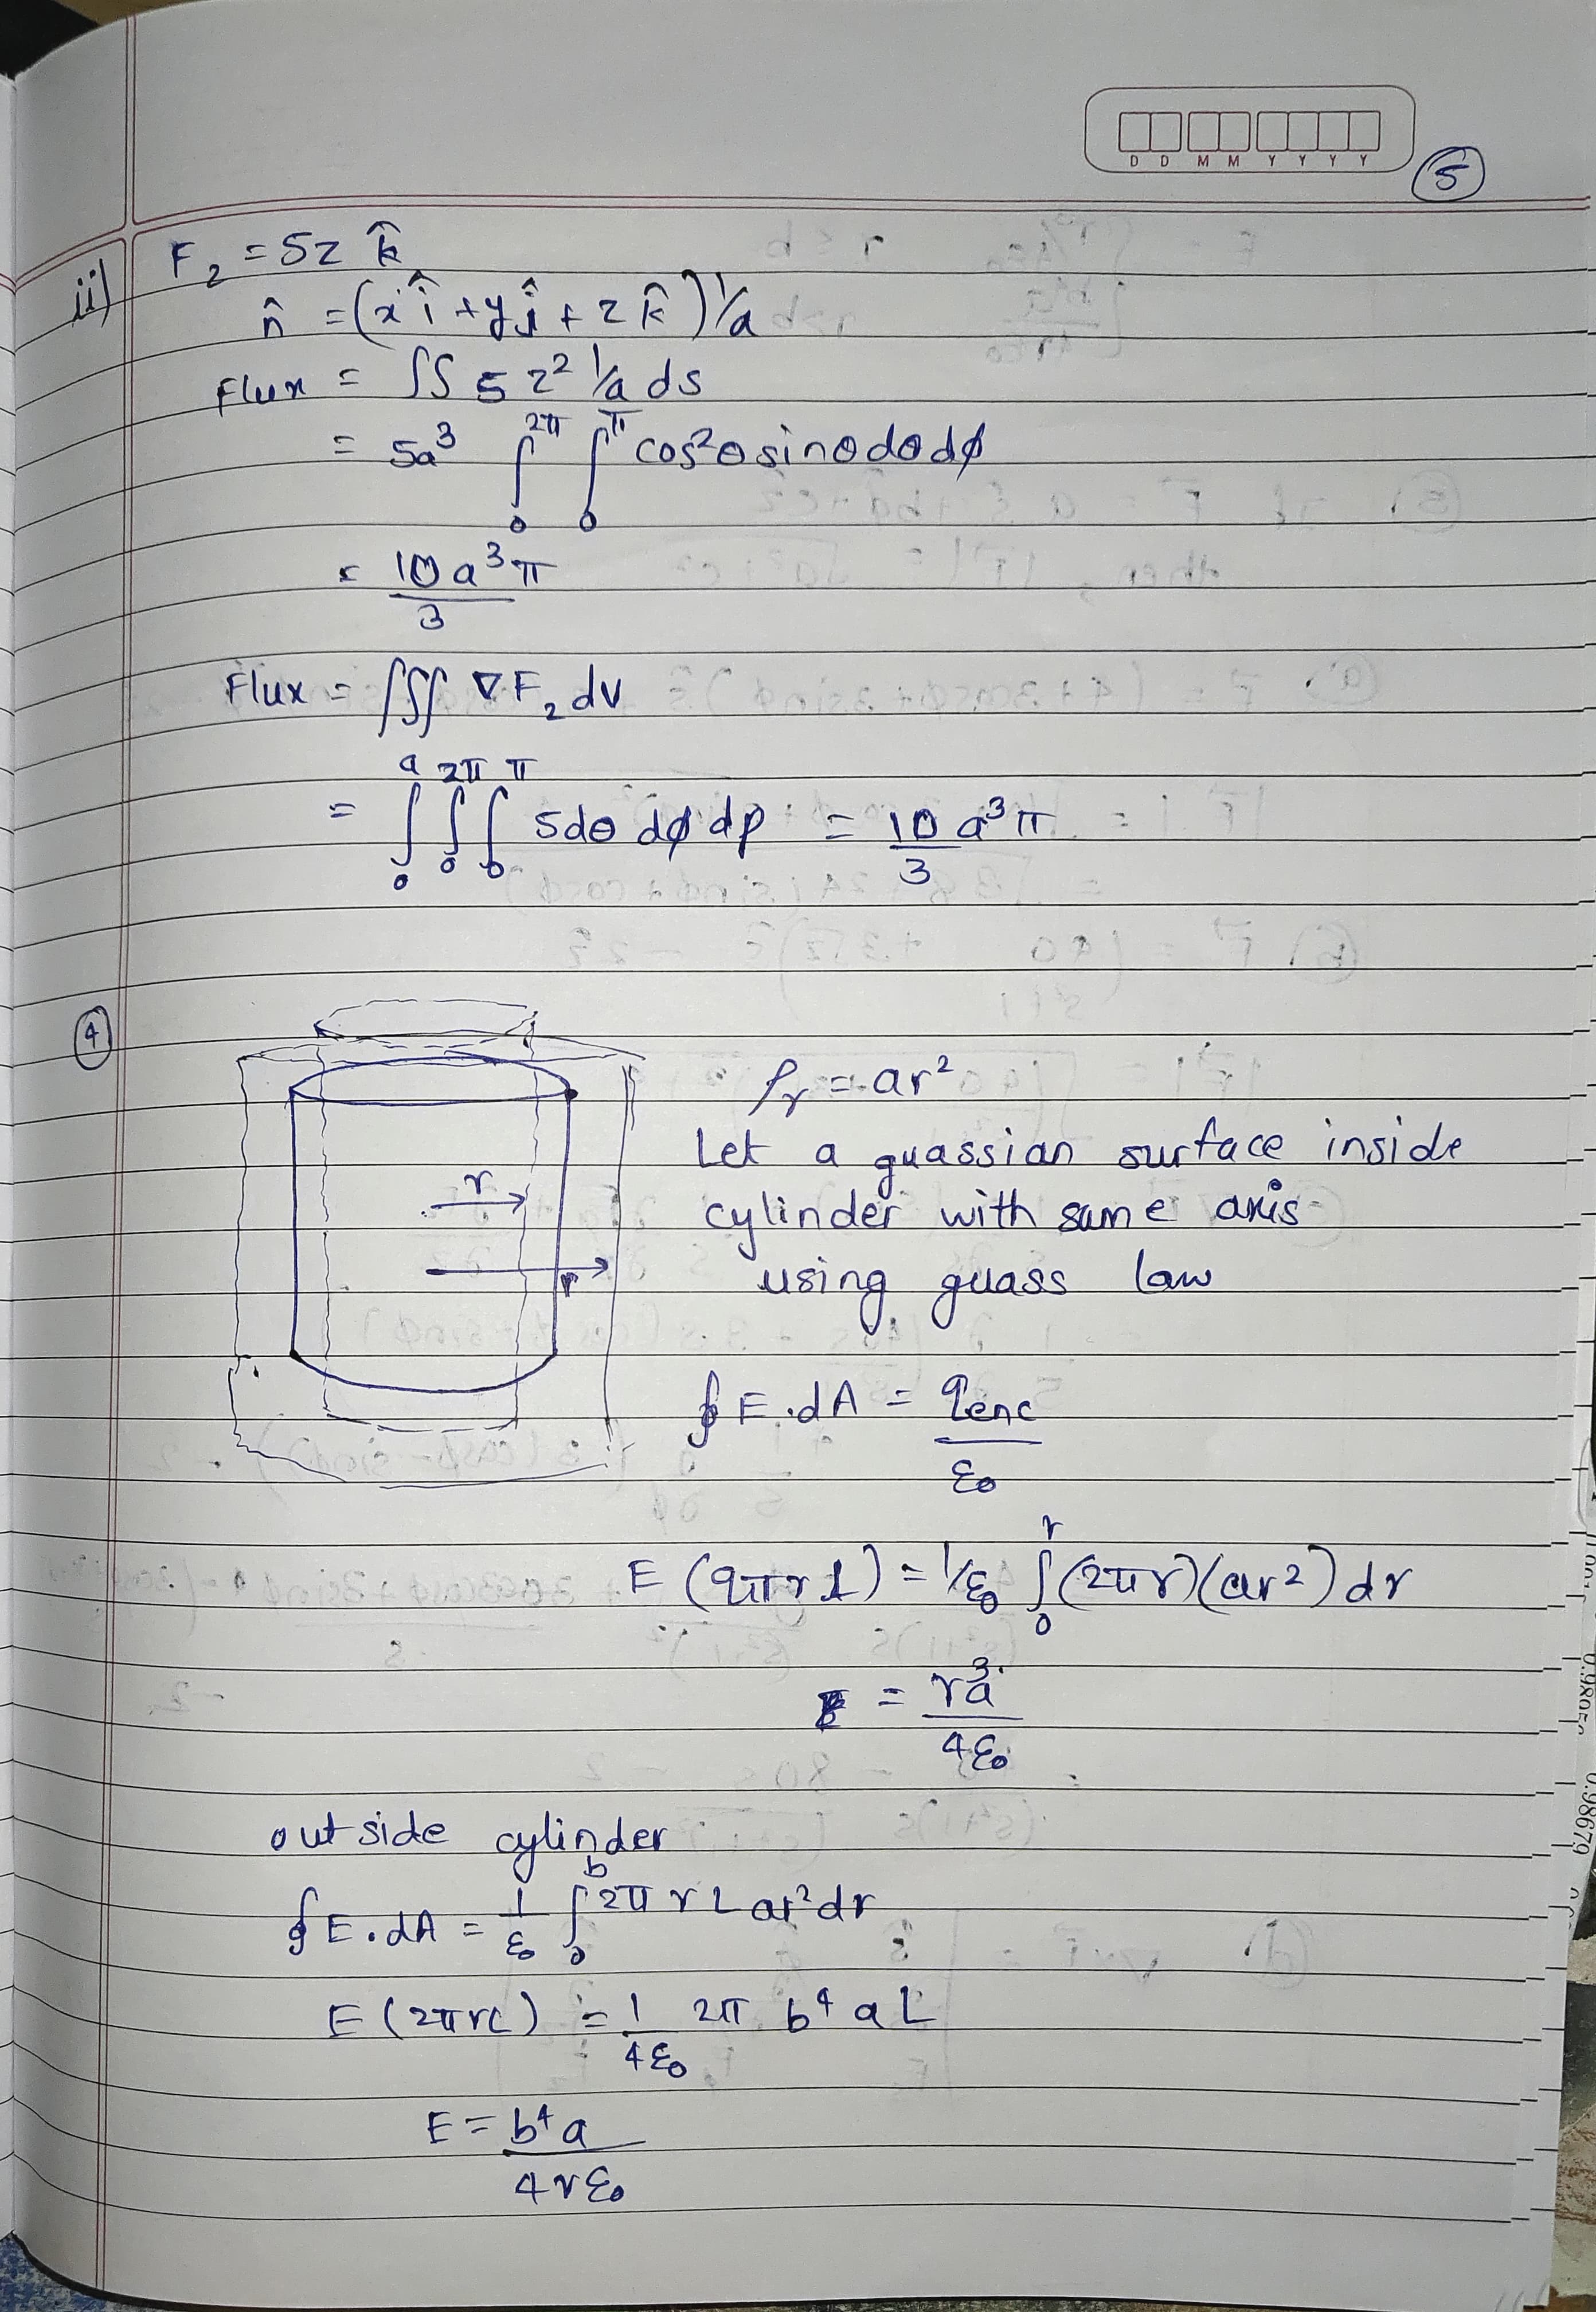 D D M M Y Y Y Y
5
ii) F₂ = 5z k̂
n̂ = (x î + y ĵ + z k̂) 1/a
Flux = ∫∫ 5 z² 1/a ds
= 5a³ ∫₀^2π ∫₀^π cos²θ sinθ dθ dϕ
= 10 a³ π / 3
Flux = ∫∫∫ ∇ F₂ dv
= ∫₀^a ∫₀^2π ∫₀^π 5 dθ dϕ dρ = 10/3 a³ π
4
ρᵣ = ar²
Let a guassian surface inside
cylinder with same axis
r
using guass law
r
∮ E . dA = qenc / ε₀
E (2πr L) = 1/ε₀ ∫₀^r (2πr)(ar²) dr
E = r³a / 4ε₀
outside cylinder
∮ E . dA = 1/ε₀ ∫₀^b 2π r L ar² dr
E (2πrL) = 1/4ε₀ 2π b⁴ a L
E = b⁴ a / 4rε₀